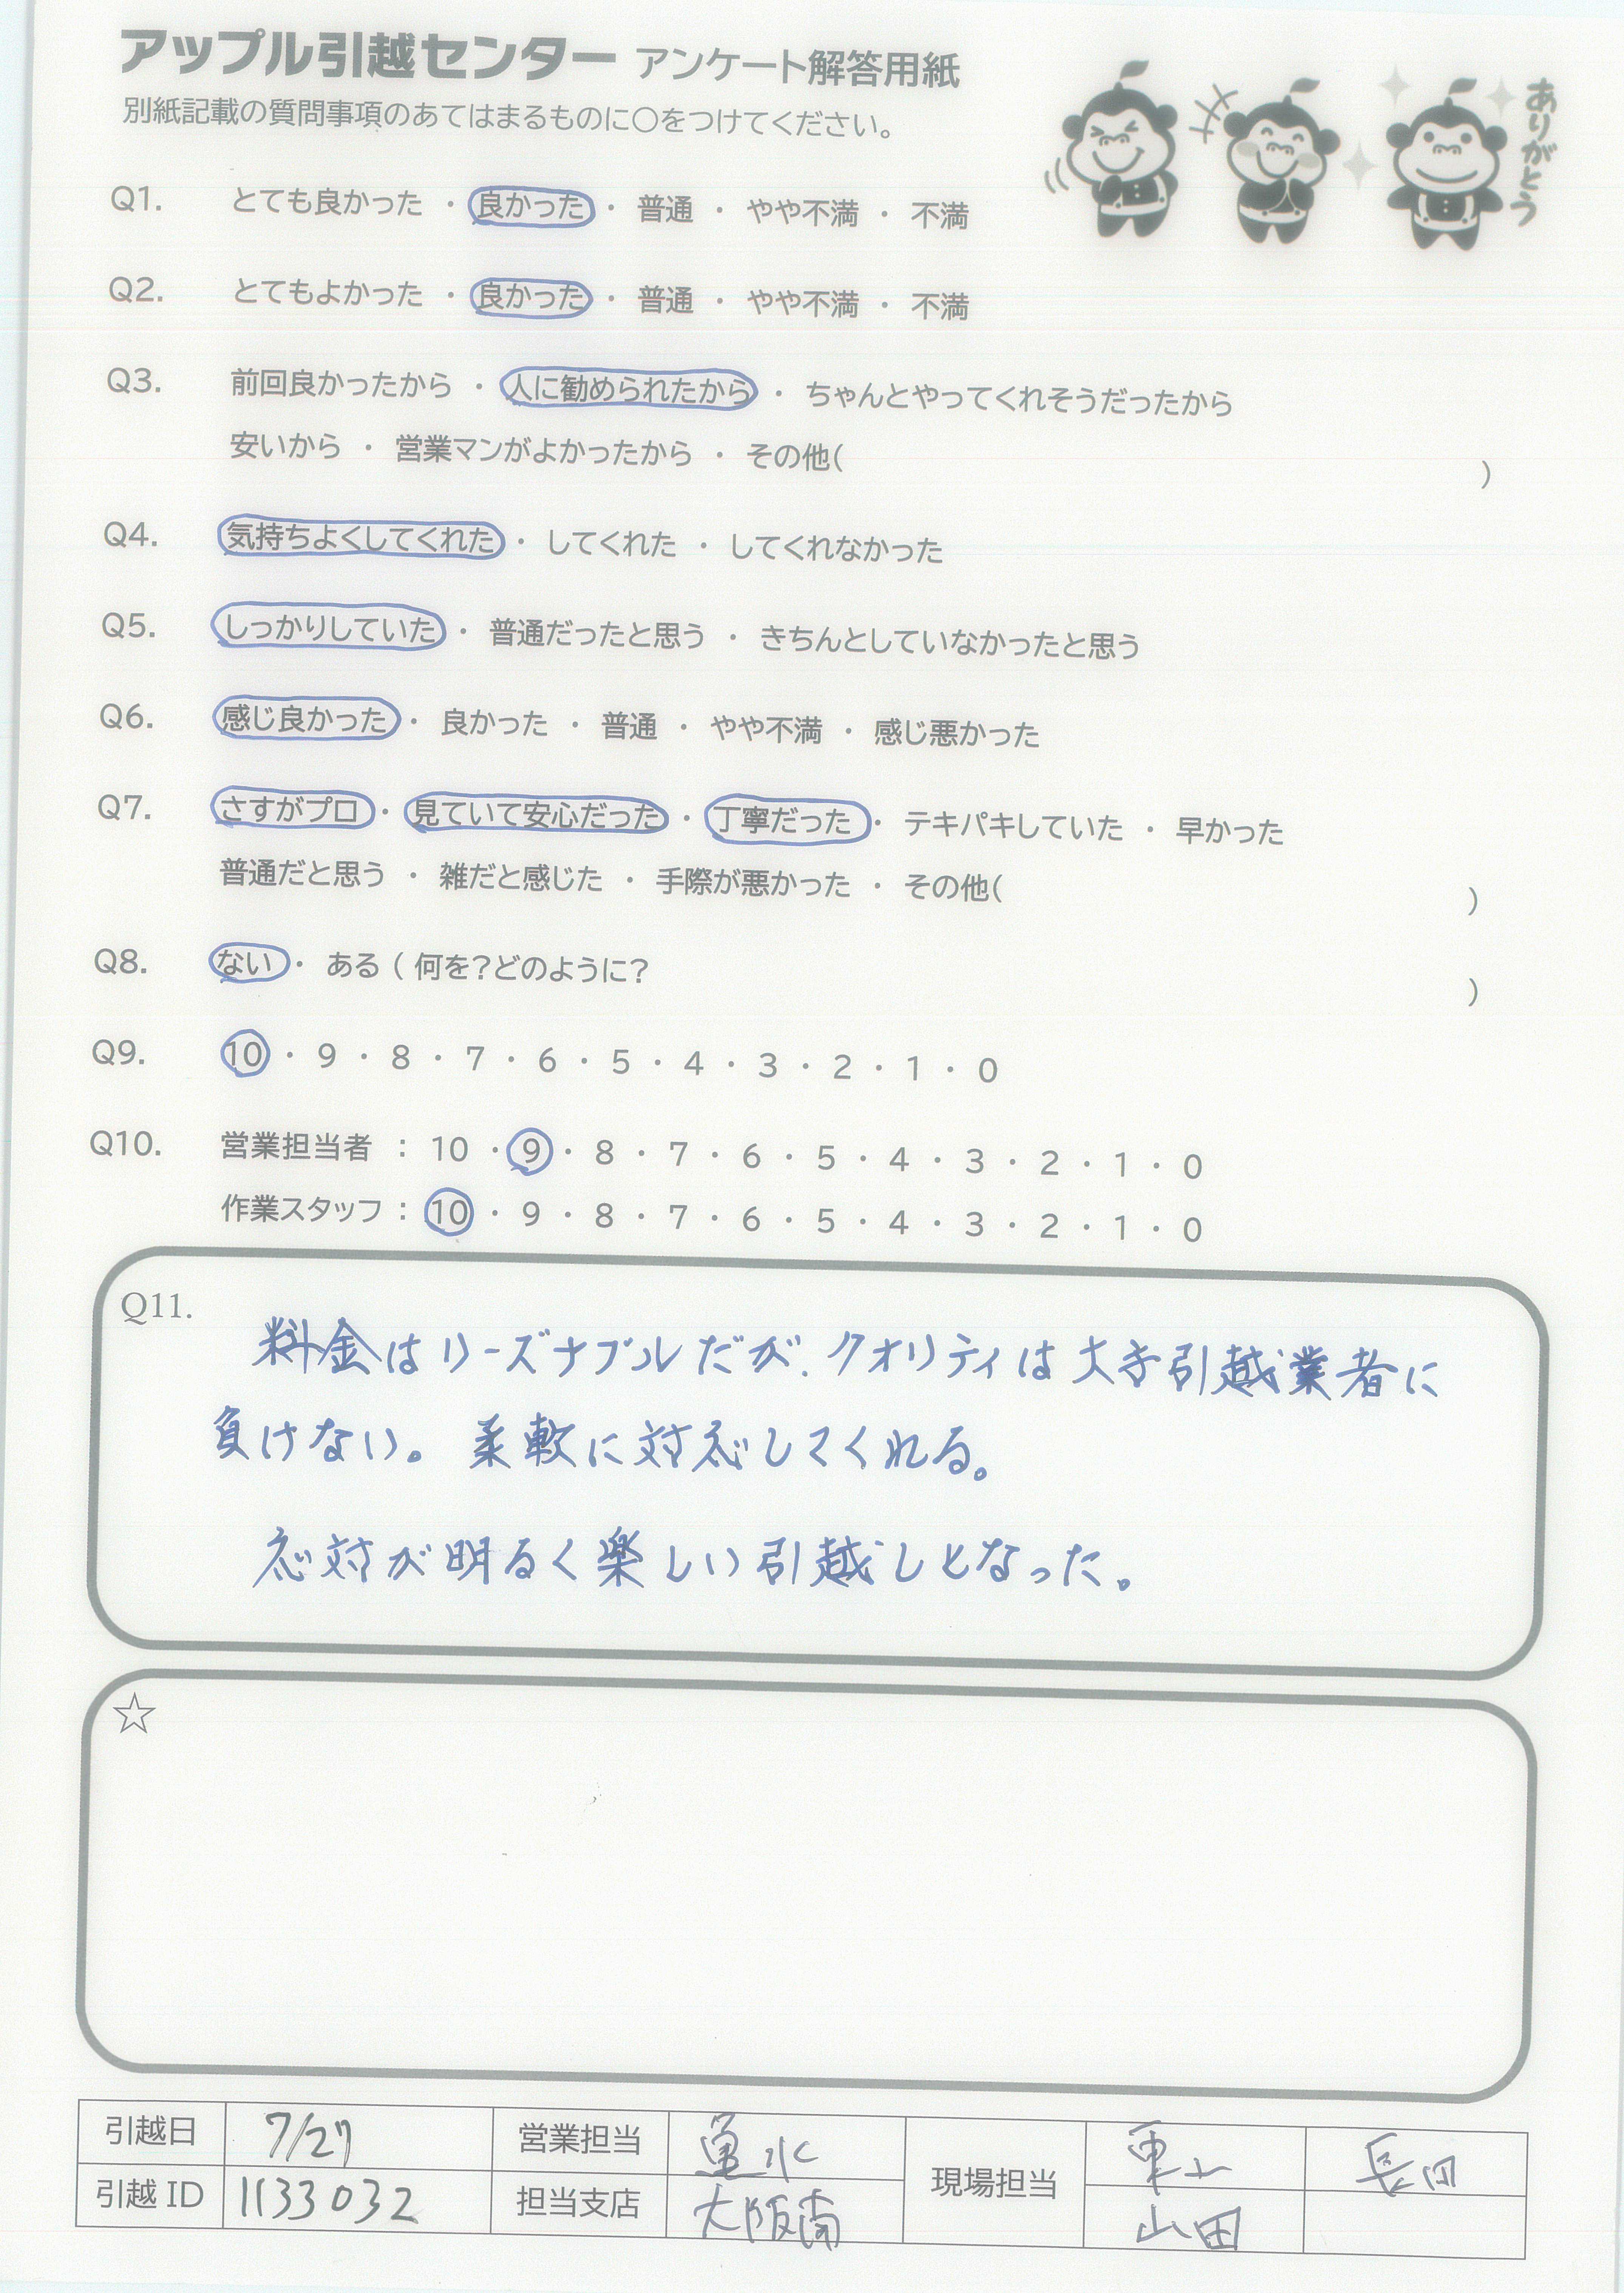 アップル引越センター アンケート解答用紙
別紙記載の質問事項のあてはまるものに○をつけてください。
ありがとう
Q1. とても良かった ・ 良かった ・ 普通 ・ やや不満 ・ 不満
Q2. とてもよかった ・ 良かった ・ 普通 ・ やや不満 ・ 不満
Q3. 前回良かったから ・ 人に勧められたから ・ ちゃんとやってくれそうだったから
安いから ・ 営業マンがよかったから ・ その他( )
Q4. 気持ちよくしてくれた ・ してくれた ・ してくれなかった
Q5. しっかりしていた ・ 普通だったと思う ・ きちんとしていなかったと思う
Q6. 感じ良かった ・ 良かった ・ 普通 ・ やや不満 ・ 感じ悪かった
Q7. さすがプロ ・ 見ていて安心だった ・ 丁寧だった ・ テキパキしていた ・ 早かった
普通だと思う ・ 雑だと感じた ・ 手際が悪かった ・ その他( )
Q8. ない ・ ある ( 何を?どのように? )
Q9. 10 ・ 9 ・ 8 ・ 7 ・ 6 ・ 5 ・ 4 ・ 3 ・ 2 ・ 1 ・ 0
Q10. 営業担当者 : 10 ・ 9 ・ 8 ・ 7 ・ 6 ・ 5 ・ 4 ・ 3 ・ 2 ・ 1 ・ 0
作業スタッフ : 10 ・ 9 ・ 8 ・ 7 ・ 6 ・ 5 ・ 4 ・ 3 ・ 2 ・ 1 ・ 0
Q11.
料金はリーズナブルだが、クオリティは大手引越業者に
負けない。柔軟に対応してくれる。
応対が明るく楽しい引越しとなった。
☆
引越日 7/27 営業担当 現場担当 長田
引越 ID 1133032 担当支店 大阪南 山田